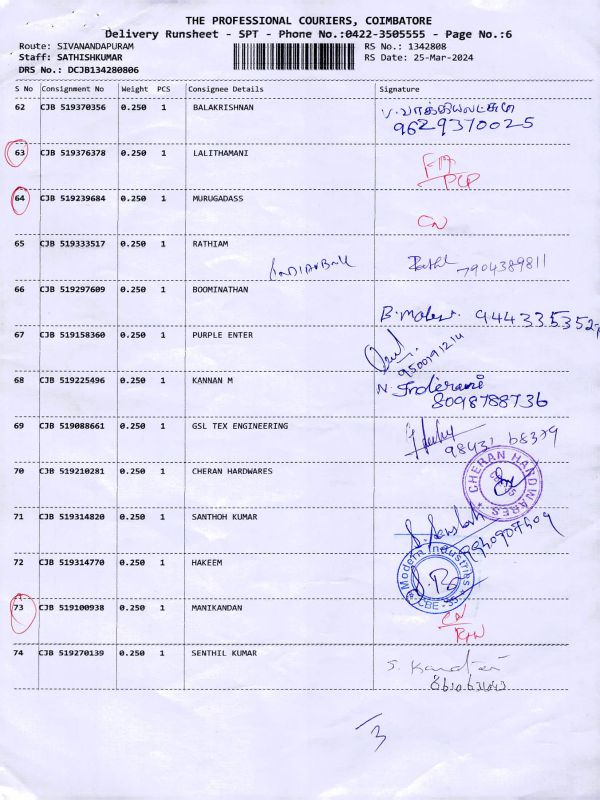 THE PROFESSIONAL COURIERS, COIMBATORE
Delivery Runsheet - SPT - Phone No.:0422-3505555 - Page No.:6
Route: SIVANANDAPURAM RS No.: 1342808
Staff: SATHISHKUMAR RS Date: 25-Mar-2024
DRS No.: DCJB134280806
S No Consignment No Weight PCS Consignee Details Signature
62 CJB 519370356 0.250 1 BALAKRISHNAN
9629370025
63 CJB 519376378 0.250 1 LALITHAMANI
64 CJB 519239684 0.250 1 MURUGADASS
CN
65 CJB 519333517 0.250 1 RATHIAM
7904389811
66 CJB 519297609 0.250 1 BOOMINATHAN
67 CJB 519158360 0.250 1 PURPLE ENTER
68 CJB 519225496 0.250 1 KANNAN M
8098788736
69 CJB 519088661 0.250 1 GSL TEX ENGINEERING
98431 68379
70 CJB 519210281 0.250 1 CHERAN HARDWARES
CHERAN HARDWARES
71 CJB 519314820 0.250 1 SANTHOH KUMAR
72 CJB 519314770 0.250 1 HAKEEM
Modern Industries
73 CJB 519100938 0.250 1 MANIKANDAN
CN
74 CJB 519270139 0.250 1 SENTHIL KUMAR
13